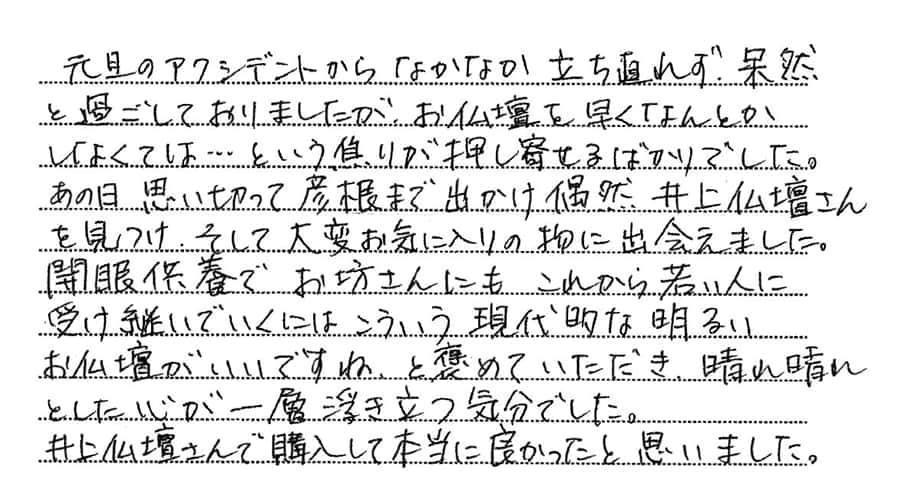 元旦のアクシデントからなかなか立ち直れず、呆然
と過ごしておりましたが、お仏壇を早くなんとか
しなくては…という焦りが押し寄せるばかりでした。
あの日思い切って彦根まで出かけ偶然、井上仏壇さん
を見つけ、そして大変お気に入りの物に出会えました。
開眼保養で お坊さんにも これから若い人に
受け継いでいくにはこういう現代的な明るい
お仏壇がいいですね、と褒めていただき、晴れ晴れ
とした心が一層浮き立つ気分でした。
井上仏壇さんで購入して本当に良かったと思いました。